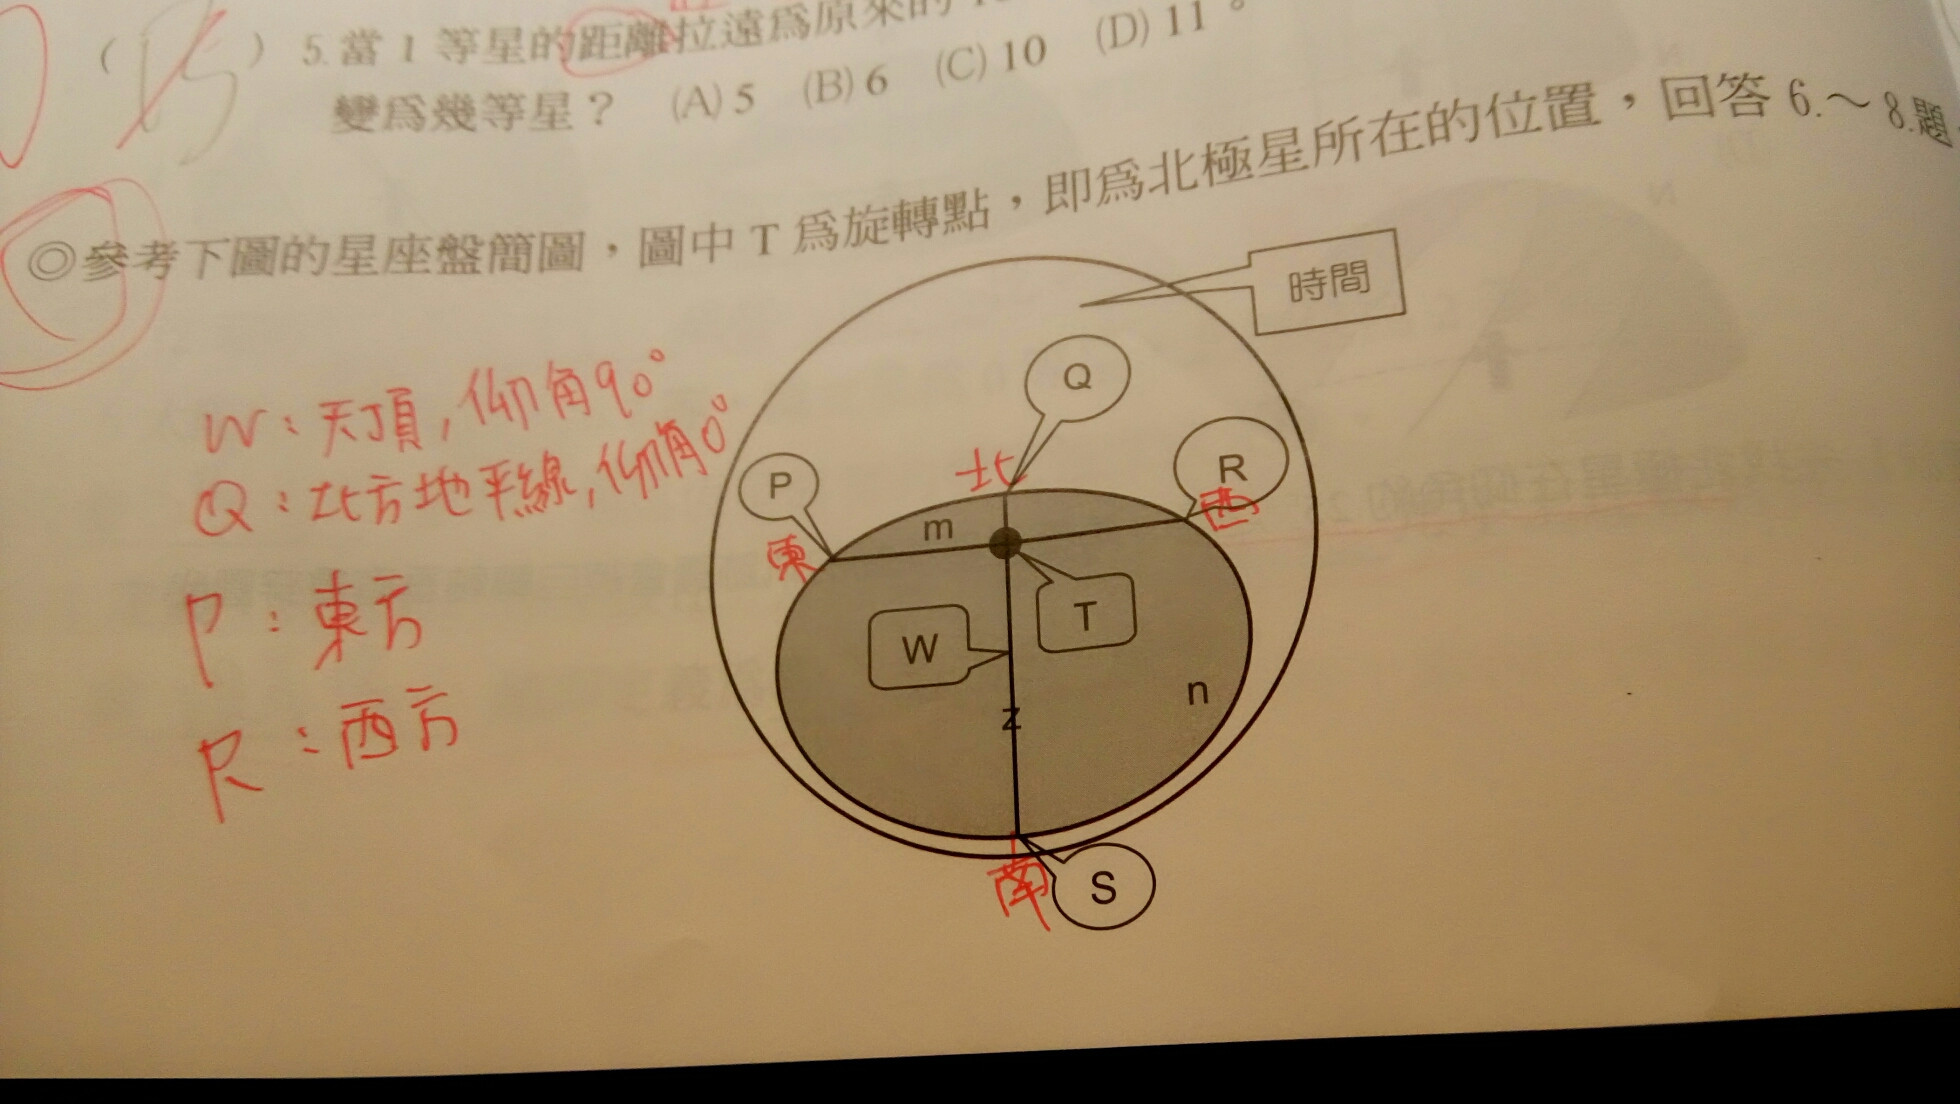 ( ) 5.當 1 等星的距離拉遠為原來的
變為幾等星？ (A) 5 (B) 6 (C) 10 (D) 11。
◎參考下圖的星座盤簡圖，圖中 T 為旋轉點，即為北極星所在的位置，回答 6.～8.題
時間
Q
W：天頂，仰角90°
Q：北方地平線，仰角0°
P：東方
R：西方
P
北
R
西
m
東
W
T
n
z
南
S